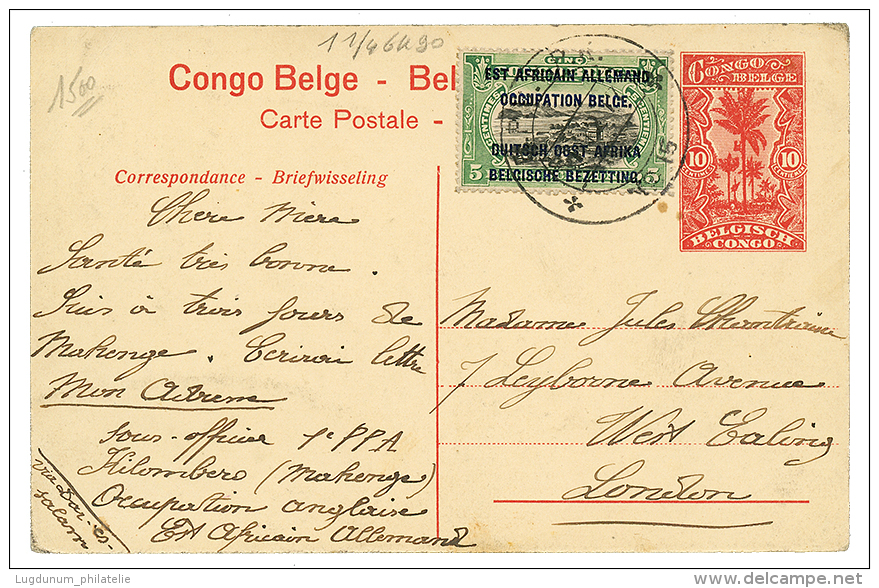 11/4 6490
1500
Congo Belge - Bel
Carte Postale -
CINQ
EST AFRICAIN ALLEMAND
OCCUPATION BELGE.
DUITSCH OOST AFRIKA
BELGISCHE BEZETTING.
5
15
CONGO
BELGE
10 10
BELGISCH
CONGO
Correspondance - Briefwisseling
Chère Mère
Santé très bonne.
Suis à trois jours de
Mahenge. Ecrirai lettre
Mon Adresse
Sous-officier 1e PPA
Kilombero (Mahenge)
Occupation anglaise
Est Africain Allemand
via Dar-es-
salam
Madame Jules
7 Leyborne Avenue
West Ealing
London
Lugdunum_philatelie
delcampe.net